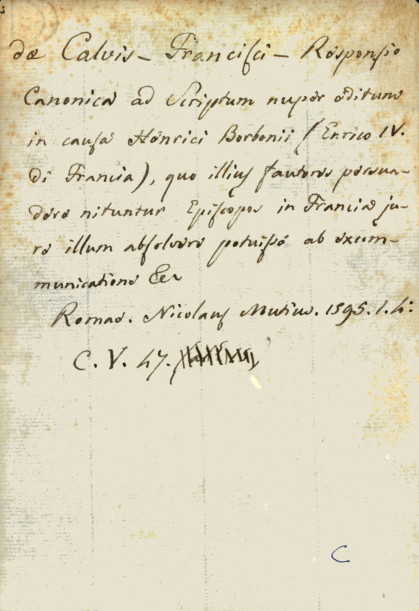 de Calvis – Francisci – Responsio
Canonica ad Scriptum nuper editum
in causa Henrici Borbonii (Enrico IV.
di Francia), quo illius fautores persua-
dere nituntur Episcopos in Francia ju-
re illum absolvere potuisse ab excom-
municatione &c
Romae. Nicolaus Mutius. 1595. 1. 4:
C. V. 47.
C